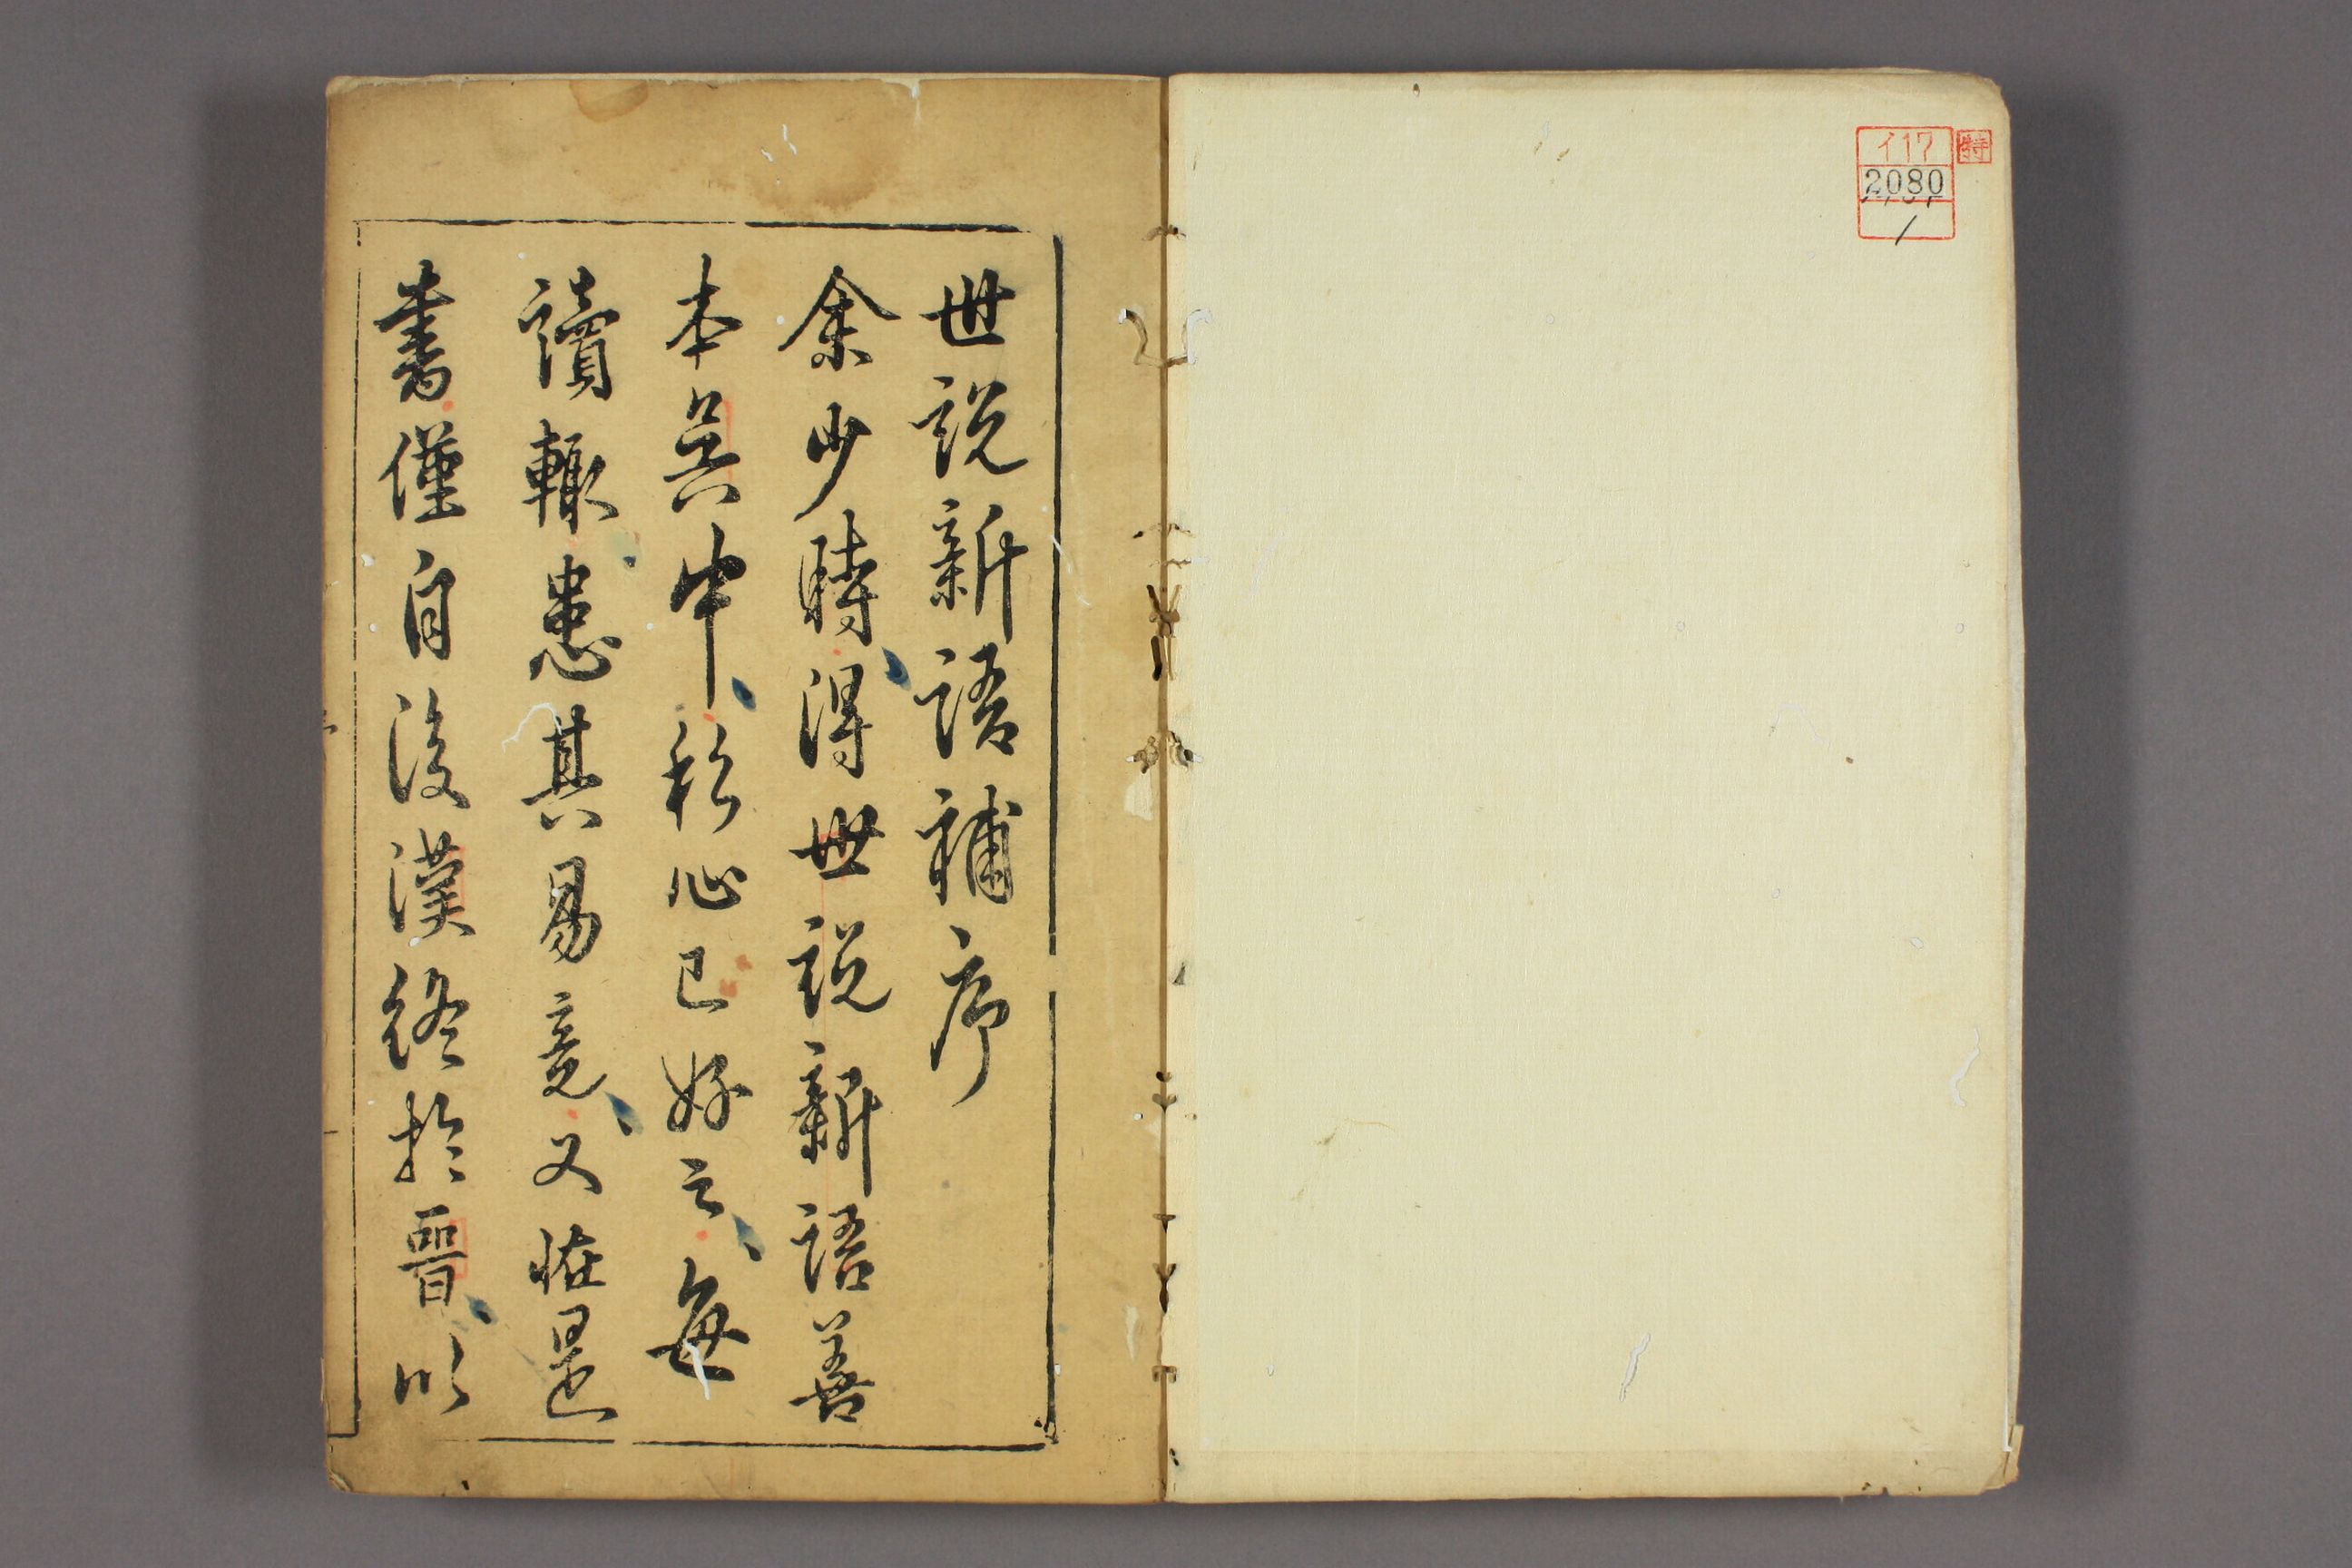 イ17
特
2080
1
世説新語補序
余少時得世説新語善
本吳中私心已好之每
讀輙患其易竟又恠是
書僅自後漢終於晉以